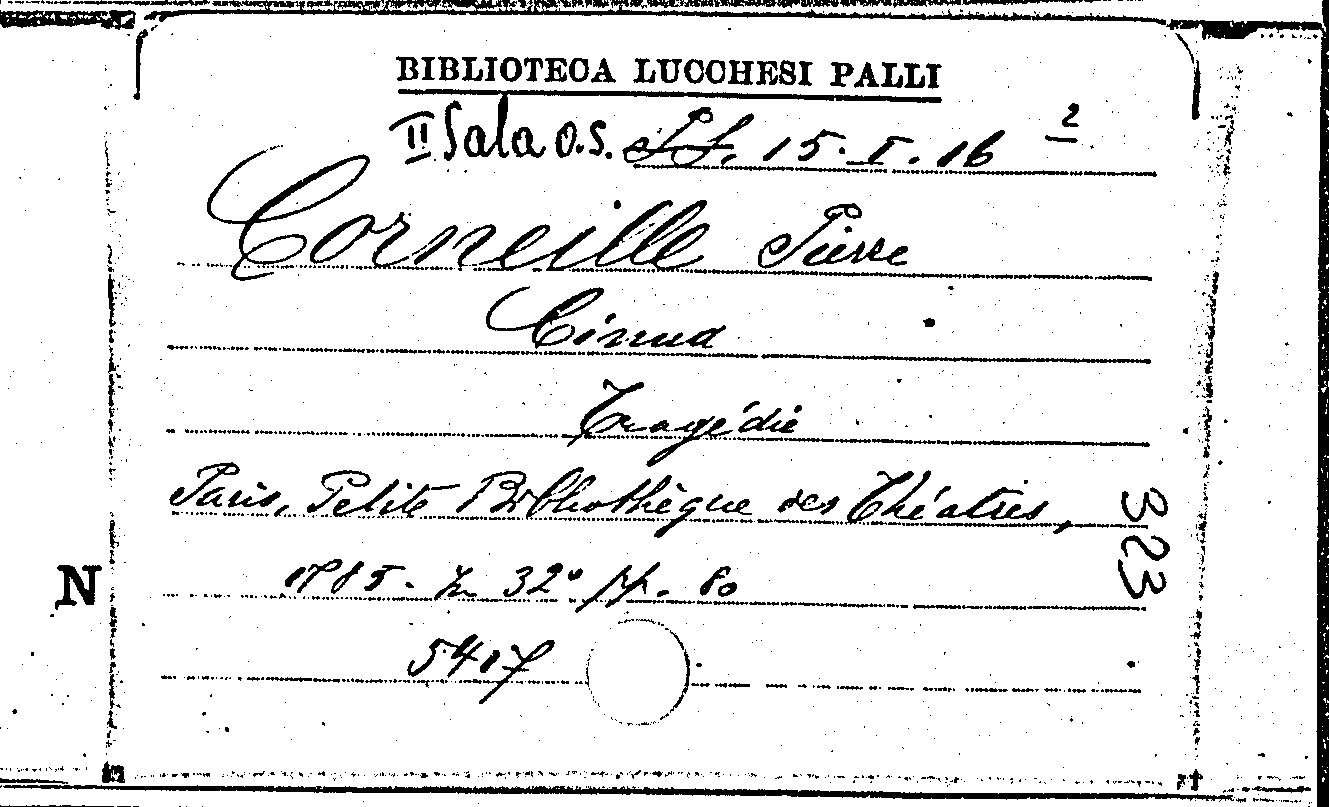 BIBLIOTECA LUCCHESI PALLI
II Sala O.S. 15. I. 16 2
Corneille Pierre
Cinna
Tragédie
Paris, Petite Bibliothèque des Théatres,
1785. In 32° pp. 80
5417
323
N